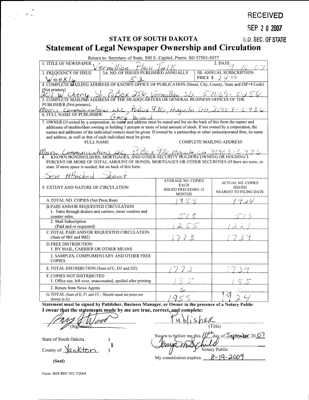 RECEIVED
SEP 20 2007
S.D. SEC. OF STATE
STATE OF SOUTH DAKOTA
Statement of Legal Newspaper Ownership and Circulation
Return to: Secretary of State, 500 E. Capitol, Pierre, SD 57501-5077
1. TITLE OF NEWSPAPER Vermillion Plain Talk
2. DATE
3. FREQUENCY OF ISSUE Weekly
3A. NO. OF ISSUES PUBLISHED ANNUALLY 52
3B. ANNUAL SUBSCRIPTION PRICE $
4. COMPLETE MAILING ADDRESS OF KNOWN OFFICE OF PUBLICATION (Street, City, County, State and ZIP+4 Code)
(Not printers)
201 W Cherry St, P.O. Box 256, Vermillion, SD 57069-0256
5. COMPLETE MAILING ADDRESS OF THE HEADQUARTERS OR GENERAL BUSINESS OFFICES OF THE
PUBLISHER (Not printers)
Morris Communications LLC, PO Box 936, Augusta GA, 30903-0936
6. FULL NAME OF PUBLISHER: Gary Wood
7. OWNER (If owned by a corporation, its name and address must be stated and list on the back of this form the names and
addresses of stockholders owing or holding 1 percent or more of total amount of stock. If not owned by a corporation, the
names and addresses of the individual owners must be given. If owned by a partnership or other unincorporated firm, its name
and address, as well as that of each individual must be given.
FULL NAME COMPLETE MAILING ADDRESS
Morris Communications LLC P.O. Box 936 Augusta GA 30903-0936
8. KNOWN BONDHOLDERS, MORTGAGES, AND OTHER SECURITY HOLDERS OWNING OR HOLDING 1
PERCENT OR MORE OF TOTAL AMOUNT OF BONDS, MORTGAGES OR OTHER SECURITIES (If there are none, so
state. If more space is needed, list on back of this form.
See Attached Sheet
9. EXTENT AND NATURE OF CIRCULATION
AVERAGE NO. COPIES EACH ISSUED PRECEDING 12 MONTHS
ACTUAL NO. COPIES ISSUED NEAREST TO FILING DATE
A. TOTAL NO. COPIES (Net Press Run) 1955 1924
B. PAID AND/OR REQUESTED CIRCULATION
1. Sales through dealers and carriers, street vendors and
counter sales 518
2. Mail Subscription
(Paid and/or requested) 1255
C. TOTAL PAID AND/OR REQUESTED CIRCULATION
(Sum of 9B1 and 9B2) 1773 1739
D. FREE DISTRIBUTION
1. BY MAIL, CARRIER OR OTHER MEANS
2. SAMPLES, COMPLIMENTARY AND OTHER FREE
COPIES
E. TOTAL DISTRIBUTION (Sum of C, D1 and D2) 1773 1739
F. COPIES NOT DISTRIBUTED
1. Office use, left over, unaccounted, spoiled after printing
2. Return from News Agents
G. TOTAL (Sum of E, F1 and F2 - Should equal net press run
shown in A) 1955 1924
Statement must be signed by Publisher, Business Manager, or Owner in the presence of a Notary Public
I swear that the statements made by me are true, correct, and complete:
Gary L Wood Publisher
(Signed) (Title)
State of South Dakota )
County of Yankton )
§
Sworn to before me this day of September 2007
Notary Public
(Seal)
My commission expires: 8-19-2009